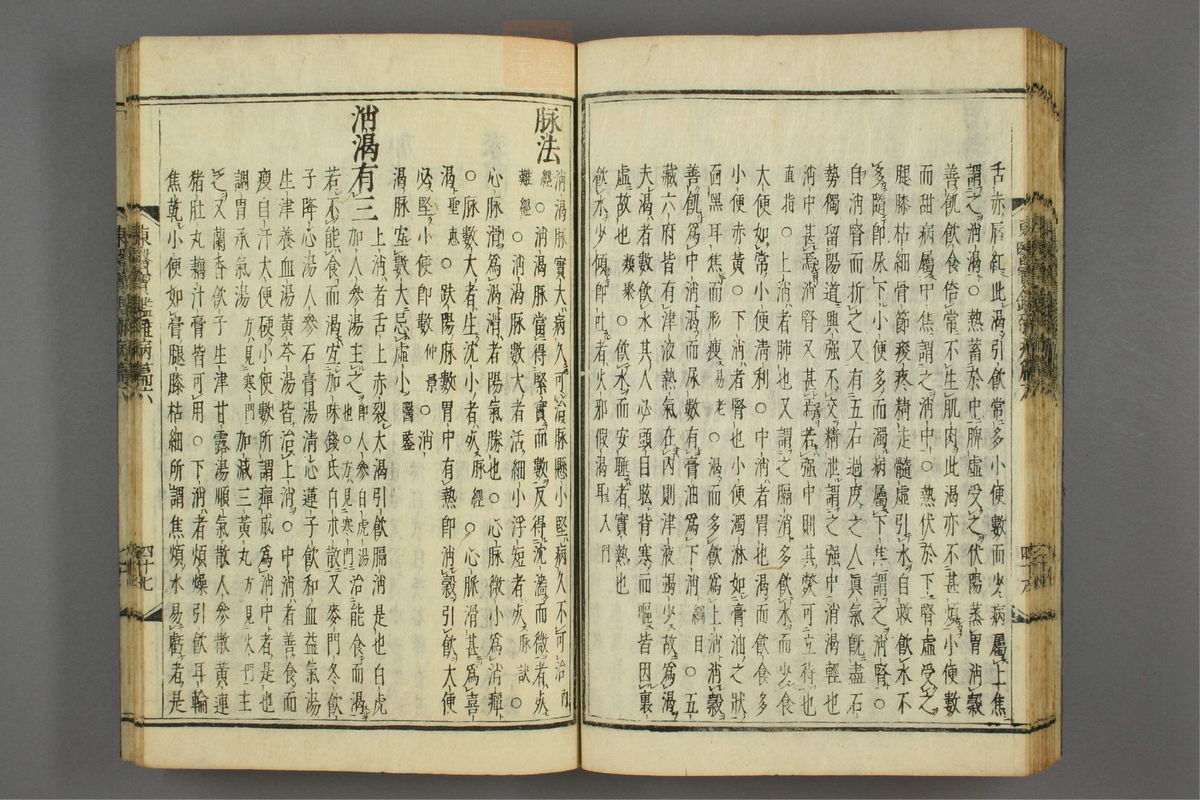 舌赤唇紅此渴引飮常多小便數而少病屬上焦
謂之消渴○熱蓄於中脾虛受之伏陽蒸胃消穀
善飢飮食倍常不生肌肉此渴亦不甚煩小便數
而甜病屬中焦謂之消中○熱伏於下腎虛受之
腿膝枯細骨節痠疼精走髓虛引水自救飮水不
多隨卽尿下小便多而濁病屬下焦謂之消腎○
自消腎而析之又有五石過度之人眞氣旣盡石
勢獨留陽道興强不交精泄謂之强中消渴輕也
消中甚焉消腎又甚焉若强中則其斃可立待也
直指○上消者肺也又謂之膈消多飮水而少食
大便如常小便淸利○中消者胃也渴而飮食多
小便赤黃○下消者腎也小便濁淋如膏油之狀
面黑耳焦而形瘦易老○渴而多飮爲上消消穀
善飢爲中消渴而尿數有膏油爲下消綱目○五
藏六府皆有津液熱氣在內則津液竭少故爲渴
夫渴者數飮水其人必頭目眩背寒而嘔皆因裏
虛故也類聚○飮水而安睡者實熱也
飮水少頃卽吐者火邪假渴耳入門
脉法
消渴脉實大病久可治脉懸小堅病久不可治內
經○消渴脉當得緊實而數反得沈濇而微者死
難經○消渴脉數大者活細小浮短者死脉訣○
心脉滑爲渴滑者陽氣勝也○心脉微小爲消癉
○脉數大者生沈小者死脉經○心脉滑甚爲喜
渴聖惠○趺陽脉數胃中有熱卽消穀引飮大便
必堅小便卽數仲景○消
渴脉宜數大忌虛小醫鑑
消渴有三
上消者舌上赤裂大渴引飮膈消是也白虎
加人參湯主之卽人參白虎湯也方見寒門治能食而渴
若不能食而渴宜加味錢氏白朮散又麥門冬飮
子降心湯人參石膏湯淸心蓮子飮和血益氣湯
生津養血湯黃芩湯皆治上消○中消者善食而
瘦自汗大便硬小便數所謂癉成爲消中者是也
調胃承氣湯方見寒門加減三黃丸方見火門主
之又蘭香飮子生津甘露湯順氣散人參散黃連
猪肚丸藕汁膏皆可用○下消者煩燥引飮耳輪
焦乾小便如膏腿膝枯細所謂焦煩水易虧者是